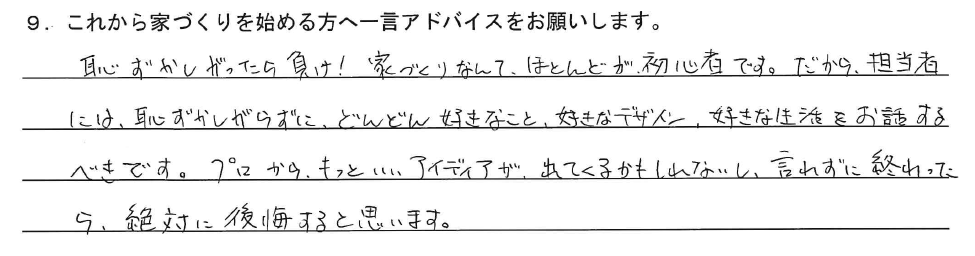 ９．これから家づくりを始める方へ一言アドバイスをお願いします。
恥ずかしがったら負け！家づくりなんて、ほとんどが、初心者です。だから、担当者
には、恥ずかしがらずに、どんどん好きなこと、好きなデザイン、好きな生活をお話する
べきです。プロから、もっといいアイディアが、出てくるかもしれないし、言れずに終わった
ら、絶対に後悔すると思います。